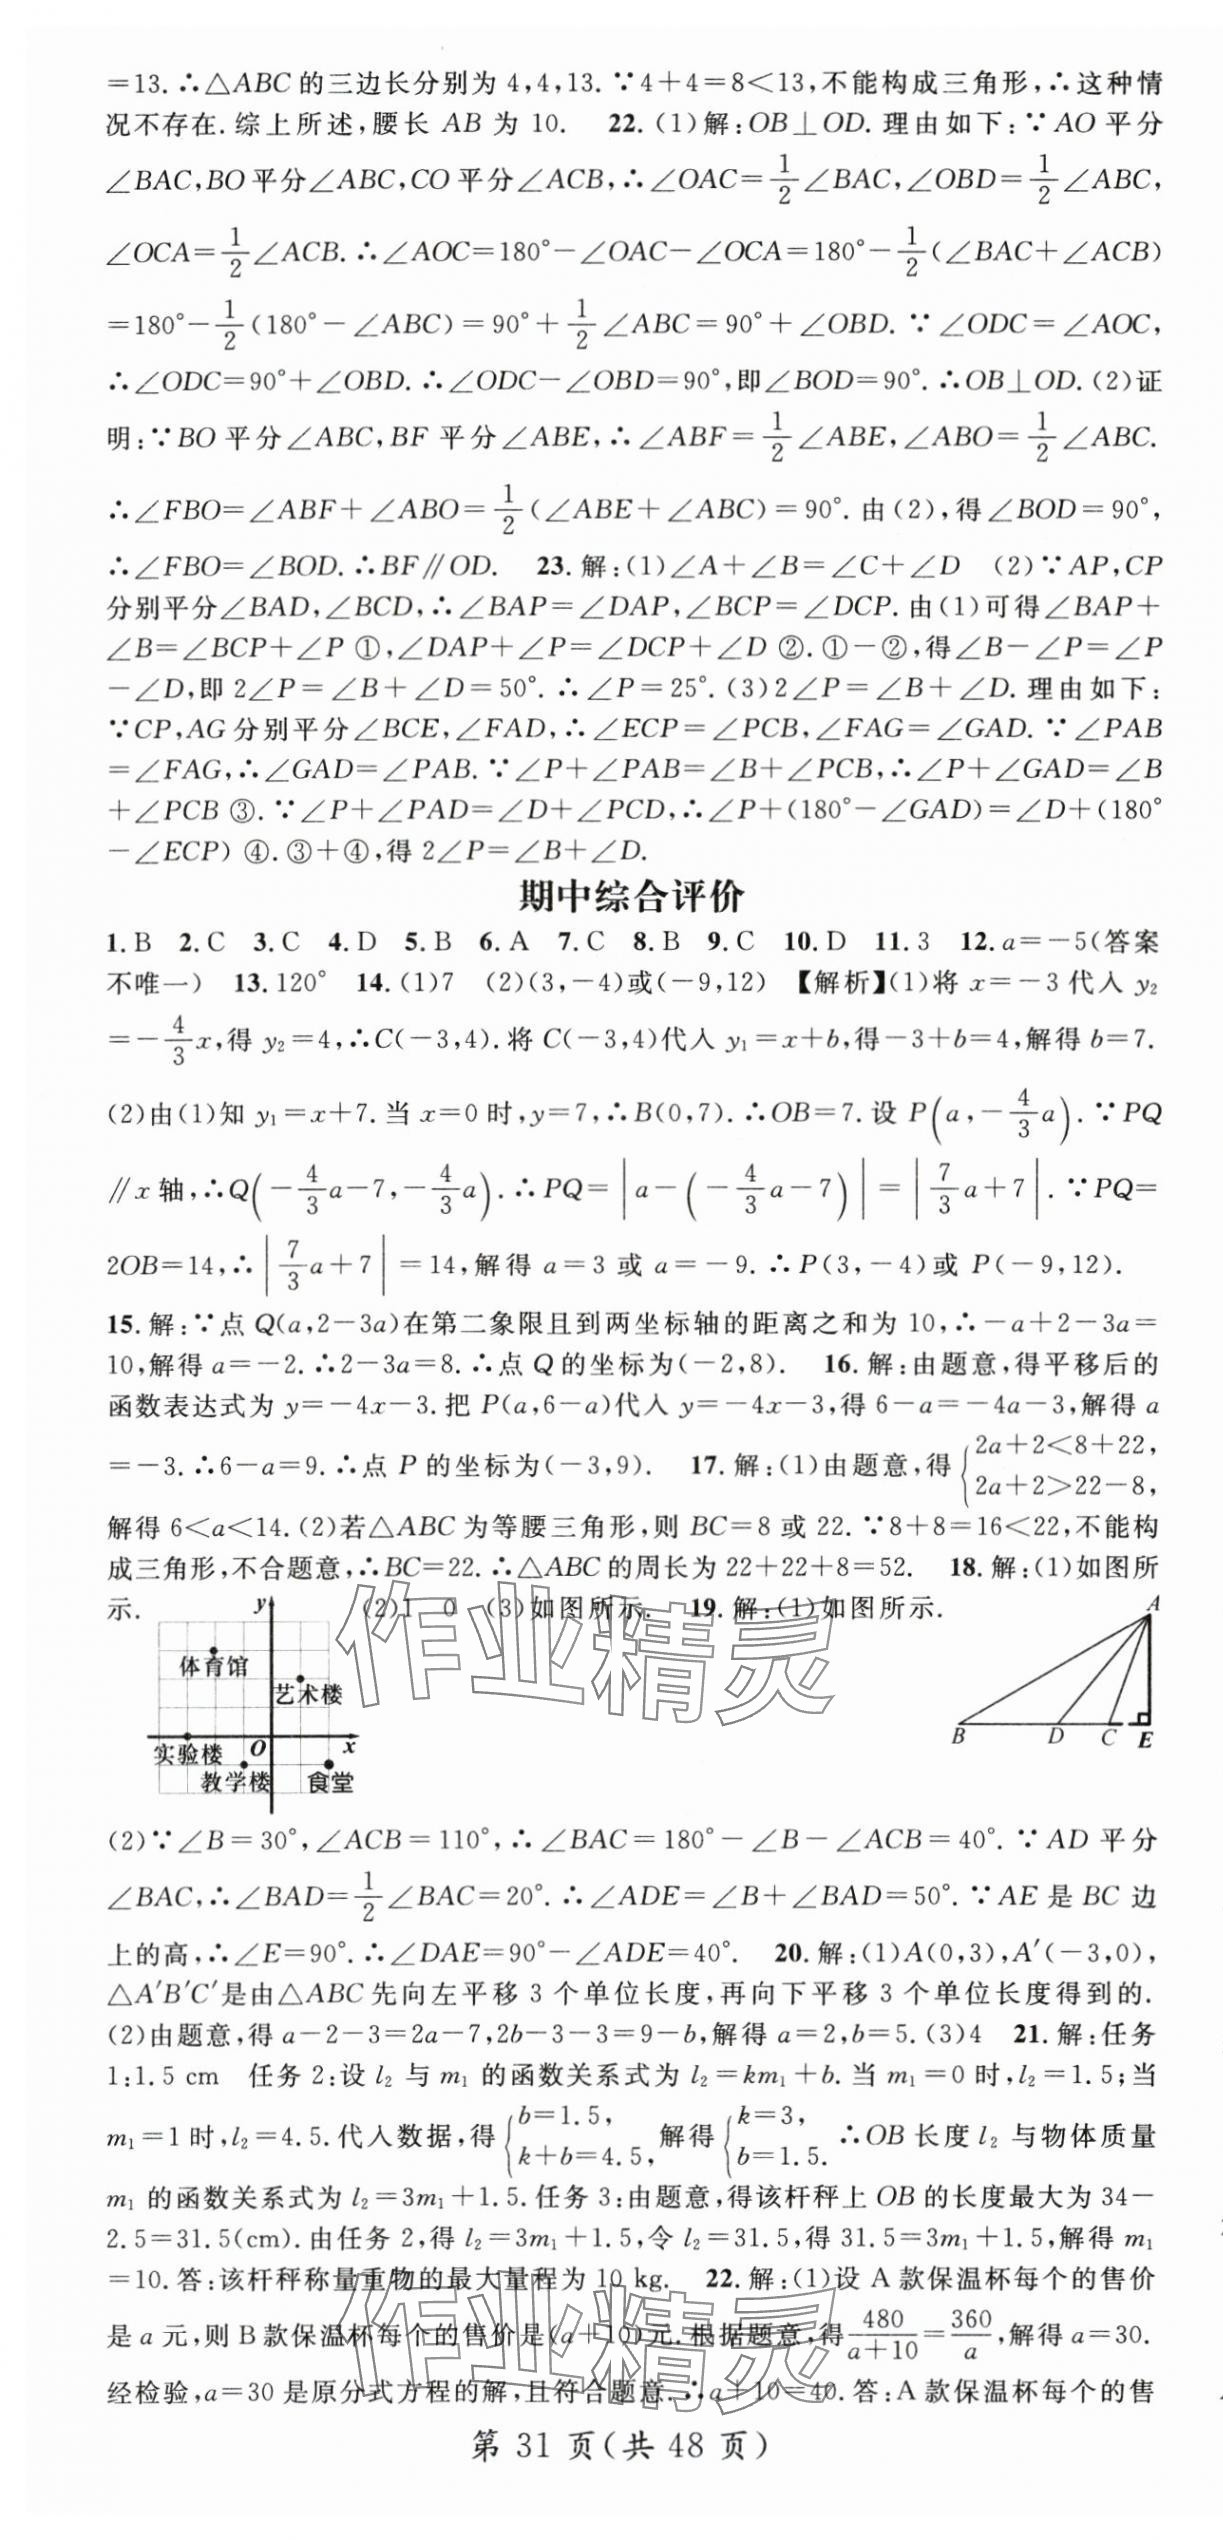 =13.∴△ABC的三边长分别为4,4,13.∵4+4=8<13,不能构成三角形,∴这种情
况不存在.综上所述,腰长AB为10. 22.(1)解:OB⊥OD.理由如下:∵AO平分
∠BAC,BO平分∠ABC,CO平分∠ACB,∴∠OAC=1/2∠BAC,∠OBD=1/2∠ABC,
∠OCA=1/2∠ACB.∴∠AOC=180°-∠OAC-∠OCA=180°-1/2(∠BAC+∠ACB)
=180°-1/2(180°-∠ABC)=90°+1/2∠ABC=90°+∠OBD.∵∠ODC=∠AOC,
∴∠ODC=90°+∠OBD.∴∠ODC-∠OBD=90°,即∠BOD=90°.∴OB⊥OD.(2)证
明:∵BO平分∠ABC,BF平分∠ABE,∴∠ABF=1/2∠ABE,∠ABO=1/2∠ABC.
∴∠FBO=∠ABF+∠ABO=1/2(∠ABE+∠ABC)=90°.由(2),得∠BOD=90°,
∴∠FBO=∠BOD.∴BF∥OD. 23.解:(1)∠A+∠B=∠C+∠D (2)∵AP,CP
分别平分∠BAD,∠BCD,∴∠BAP=∠DAP,∠BCP=∠DCP.由(1)可得∠BAP+
∠B=∠BCP+∠P ①,∠DAP+∠P=∠DCP+∠D ②.①-②,得∠B-∠P=∠P
-∠D,即2∠P=∠B+∠D=50°.∴∠P=25°.(3)2∠P=∠B+∠D.理由如下:
∵CP,AG分别平分∠BCE,∠FAD,∴∠ECP=∠PCB,∠FAG=∠GAD.∵∠PAB
=∠FAG,∴∠GAD=∠PAB.∵∠P+∠PAB=∠B+∠PCB,∴∠P+∠GAD=∠B
+∠PCB ③.∵∠P+∠PAD=∠D+∠PCD,∴∠P+(180°-∠GAD)=∠D+(180°
-∠ECP) ④.③+④,得2∠P=∠B+∠D.
期中综合评价
1.B 2.C 3.C 4.D 5.B 6.A 7.C 8.B 9.C 10.D 11.3 12.a=-5(答案
不唯一) 13.120° 14.(1)7 (2)(3,-4)或(-9,12) 【解析】(1)将x=-3代入y₂
=-4/3x,得y₂=4,∴C(-3,4).将C(-3,4)代入y₁=x+b,得-3+b=4,解得b=7.
(2)由(1)知y₁=x+7.当x=0时,y=7,∴B(0,7).∴OB=7.设P(a,-4/3a).∵PQ
∥x轴,∴Q(-4/3a-7,-4/3a).∴PQ=|a-(-4/3a-7)|=|7/3a+7|.∵PQ=
2OB=14,∴|7/3a+7|=14,解得a=3或a=-9.∴P(3,-4)或P(-9,12).
15.解:∵点Q(a,2-3a)在第二象限且到两坐标轴的距离之和为10,∴-a+2-3a=
10,解得a=-2.∴2-3a=8.∴点Q的坐标为(-2,8). 16.解:由题意,得平移后的
函数表达式为y=-4x-3.把P(a,6-a)代入y=-4x-3,得6-a=-4a-3,解得a
=-3.∴6-a=9.∴点P的坐标为(-3,9). 17.解:(1)由题意,得{2a+2<8+22, 2a+2>22-8,
解得6<a<14.(2)若△ABC为等腰三角形,则BC=8或22.∵8+8=16<22,不能构
成三角形,不合题意,∴BC=22.∴△ABC的周长为22+22+8=52. 18.解:(1)如图所
示. (2)1 0 (3)如图所示. 19.解:(1)如图所示.
y
体育馆
艺术楼
实验楼 O x
教学楼 食堂
A
B D C E
(2)∵∠B=30°,∠ACB=110°,∴∠BAC=180°-∠B-∠ACB=40°.∵AD平分
∠BAC,∴∠BAD=1/2∠BAC=20°.∴∠ADE=∠B+∠BAD=50°.∵AE是BC边
上的高,∴∠E=90°.∴∠DAE=90°-∠ADE=40°. 20.解:(1)A(0,3),A′(-3,0),
△A′B′C′是由△ABC先向左平移3个单位长度,再向下平移3个单位长度得到的.
(2)由题意,得a-2-3=2a-7,2b-3-3=9-b,解得a=2,b=5.(3)4 21.解:任务
1:1.5 cm 任务2:设l₂与m₁的函数关系式为l₂=km₁+b.当m₁=0时,l₂=1.5;当
m₁=1时,l₂=4.5.代入数据,得{b=1.5, k+b=4.5, 解得{k=3, b=1.5. ∴OB长度l₂与物体质量
m₁的函数关系式为l₂=3m₁+1.5.任务3:由题意,得该杆秤上OB的长度最大为34-
2.5=31.5(cm).由任务2,得l₂=3m₁+1.5,令l₂=31.5,得31.5=3m₁+1.5,解得m₁
=10.答:该杆秤称量重物的最大量程为10 kg. 22.解:(1)设A款保温杯每个的售价
是a元,则B款保温杯每个的售价是(a+10)元.根据题意,得480/(a+10)=360/a,解得a=30.
经检验,a=30是原分式方程的解,且符合题意.∴a+10=40.答:A款保温杯每个的售
第31页(共48页)
作业精灵
作业精灵